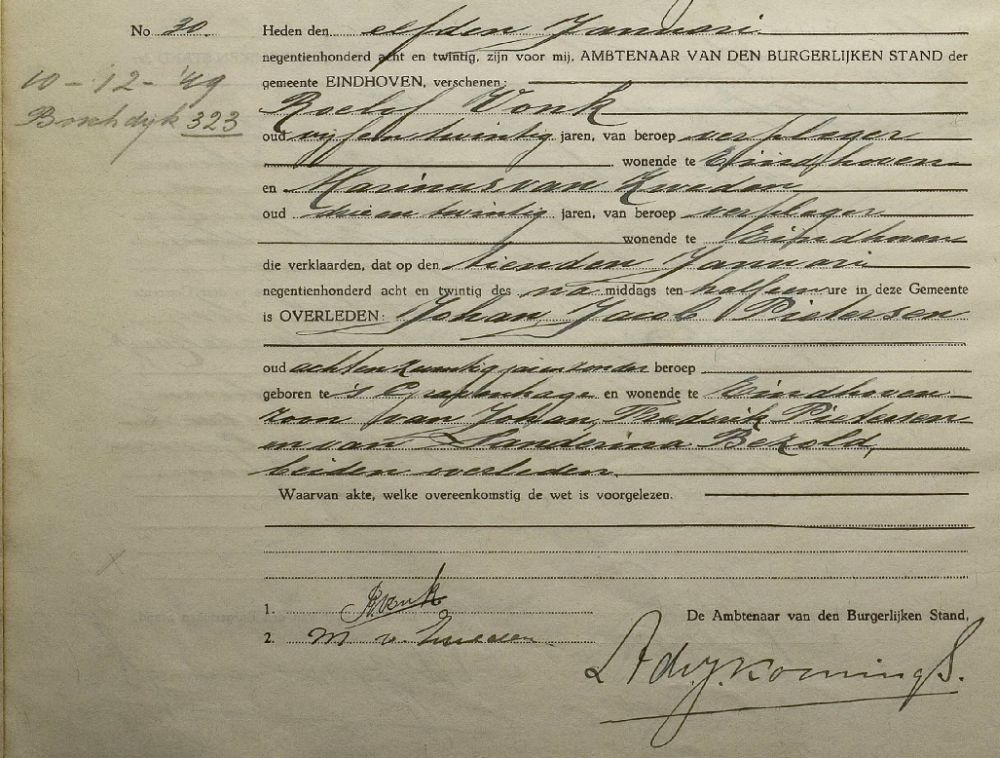 No 30. Heden den elfden Januari
negentienhonderd acht en twintig, zijn voor mij, AMBTENAAR VAN DEN BURGERLIJKEN STAND der
10-12-'49 gemeente EINDHOVEN, verschenen:
Boschdijk 323 Roelof Vonk
oud vijf en twintig jaren, van beroep verpleger
wonende te Eindhoven
en Marinus van Zweden
oud drie en twintig jaren, van beroep verpleger
wonende te Eindhoven
die verklaarden, dat op den tienden Januari
negentienhonderd acht en twintig des na middags ten half een ure in deze Gemeente
is OVERLEDEN: Johan Jacob Pietersen
oud acht en twintig jaren zonder beroep
geboren te 's Gravenhage en wonende te Eindhoven
zoon van Johan, Frederik Pietersen
en van Sanderina Bezold,
beiden overleden.
Waarvan akte, welke overeenkomstig de wet is voorgelezen.
1. R Vonk
De Ambtenaar van den Burgerlijken Stand,
2. M v. Zweden